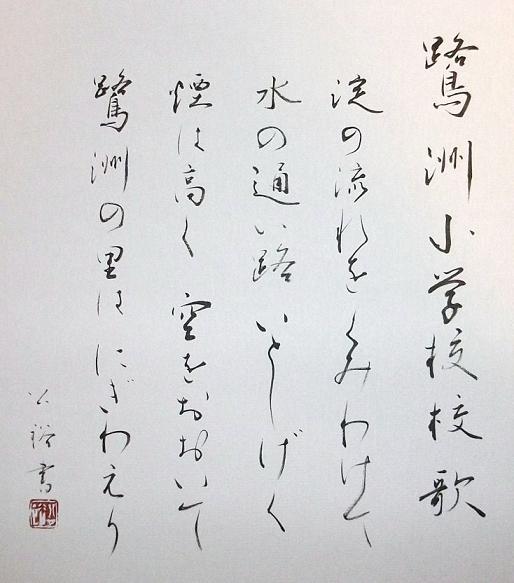 鷺洲小学校校歌
淀の流れをくみわけて
水の通い路 いとしげく
煙は高く 空をおおいて
鷺洲の里は にぎわえり
公裕書